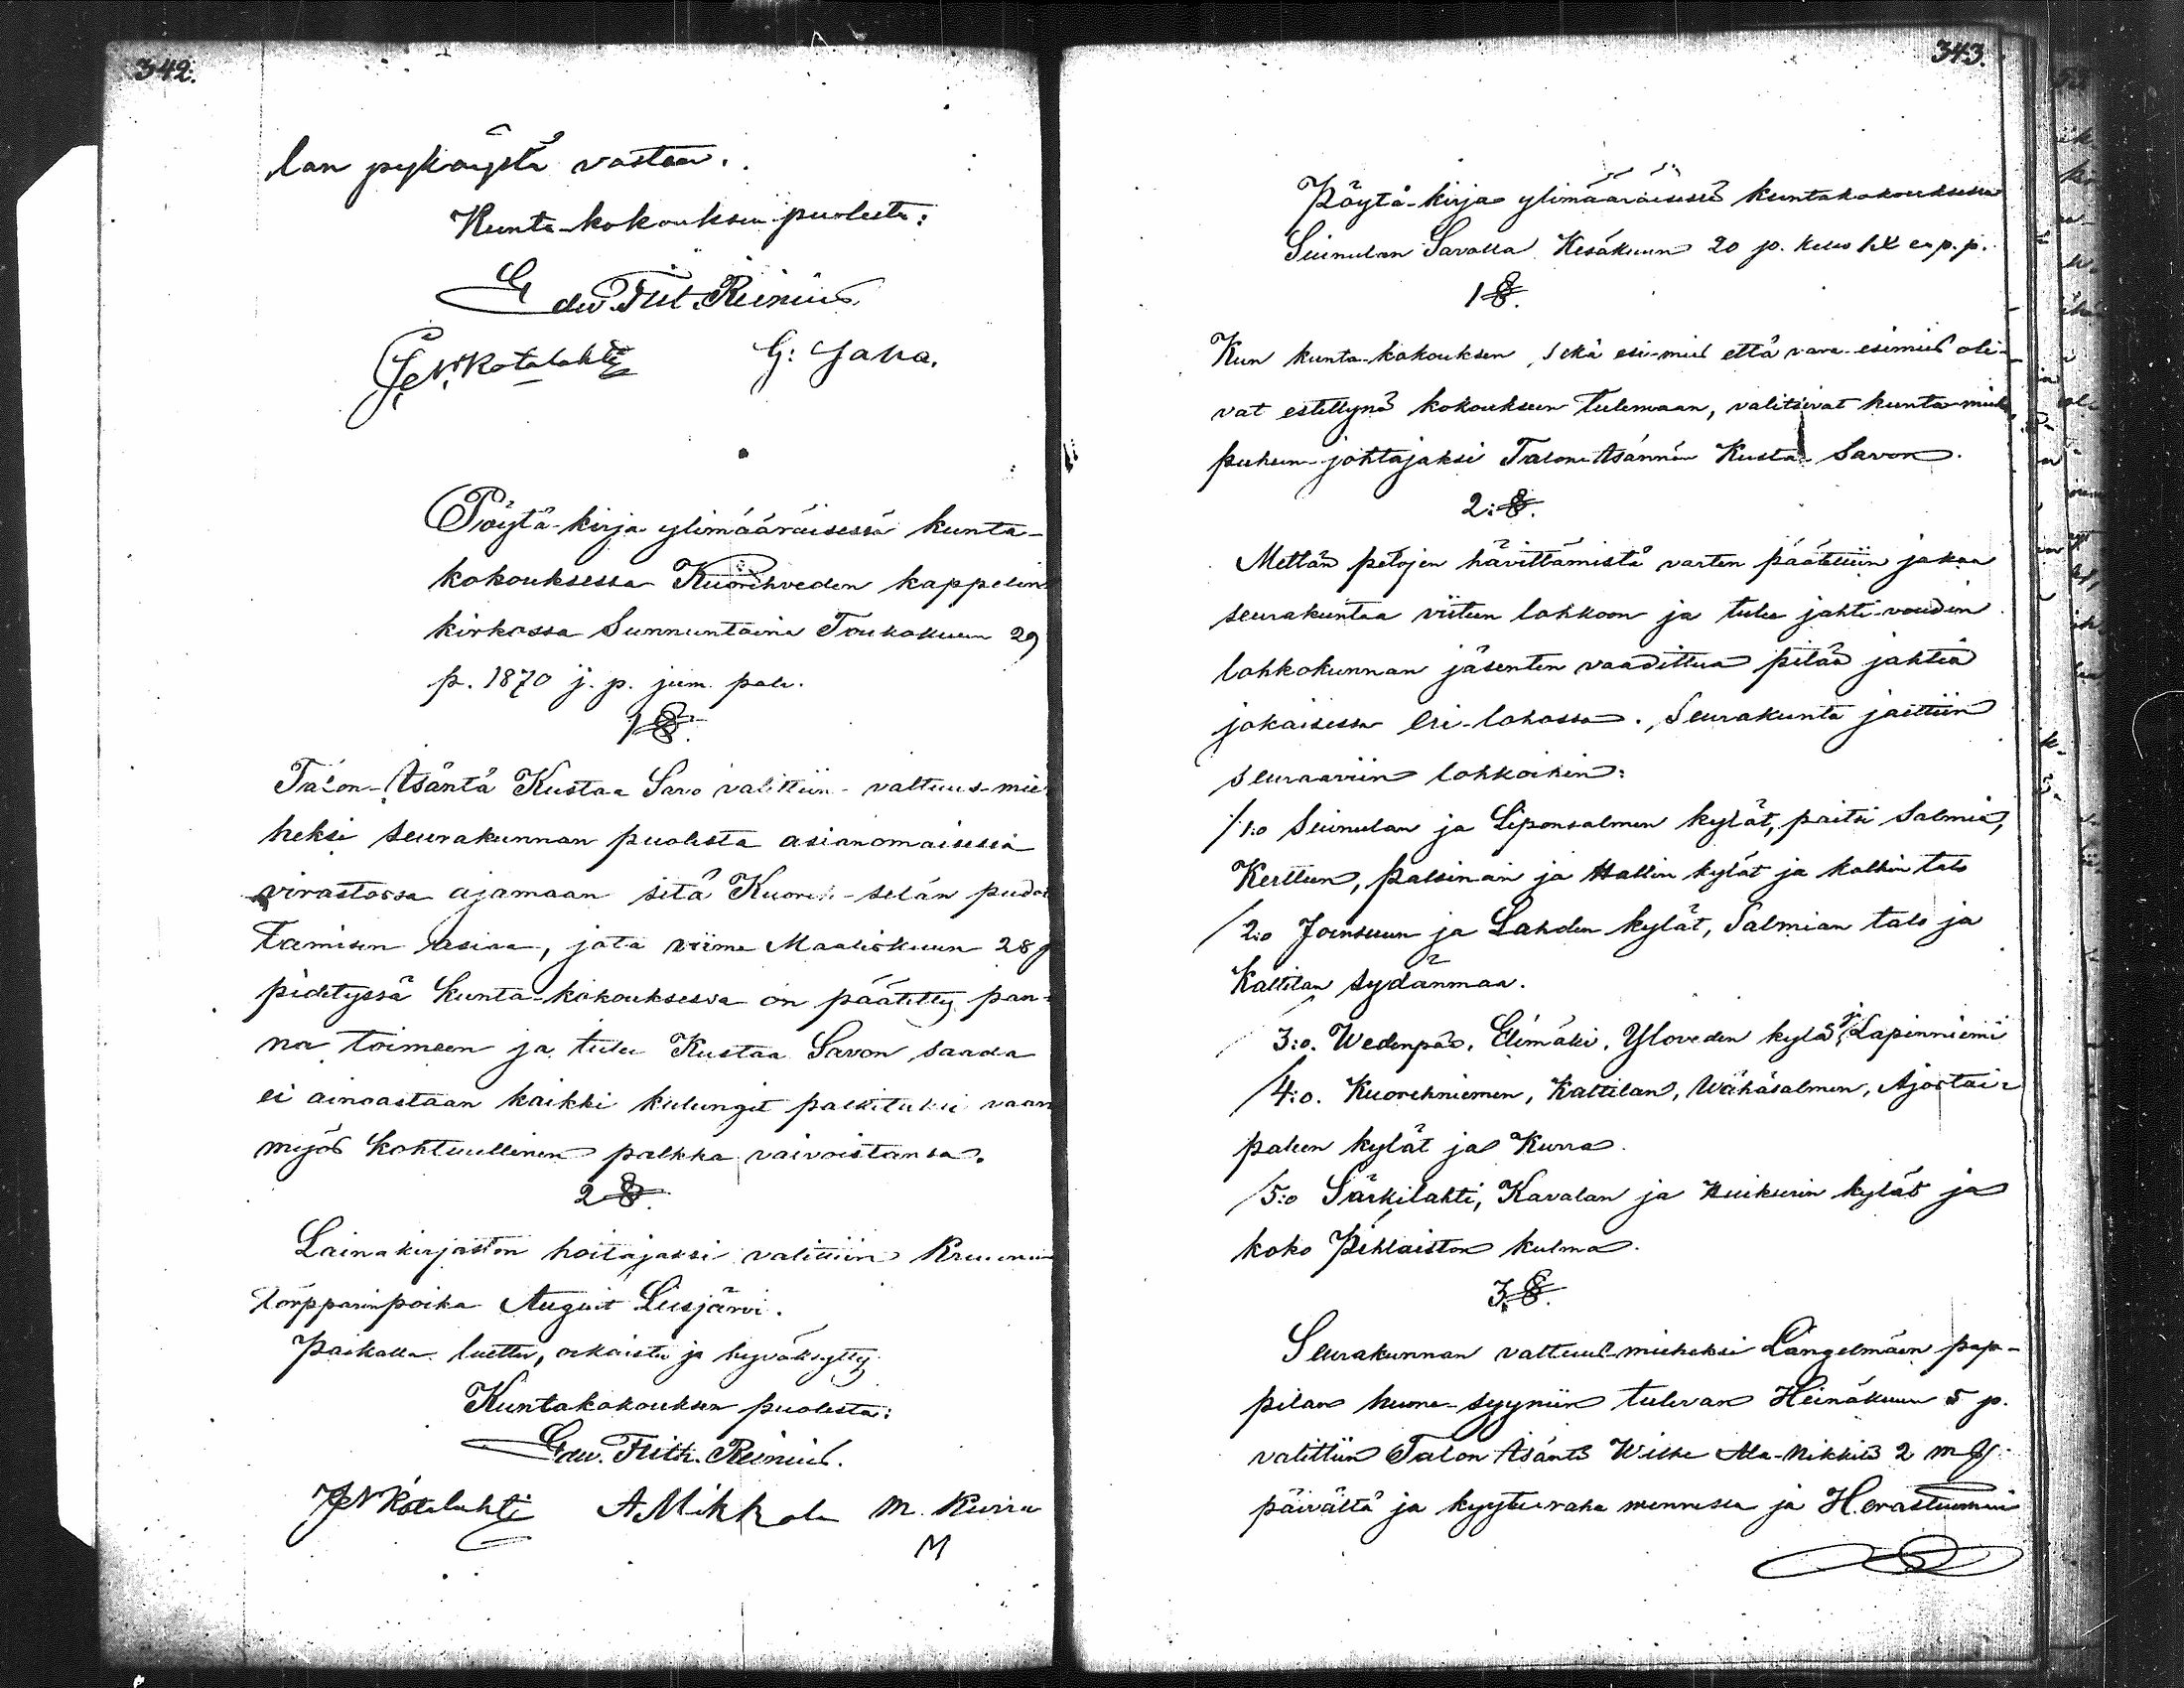 342.
lan pykäystä vastaan.
Kunta-kokouksen puolesta:
Edv. Frit. Reinius.
J. N. Kotalahti G: Jaha.
Pöytä-kirja ylimääräisessä kunta-
kokouksessa Kuorehveden kappelin
kirkossa Sunnuntaina Toukokuun 29
p. 1870 j. p. jum. palv.
1 §.
Talon-Isäntä Kustaa Savo valittiin valtuus-mie
heksi seurakunnan puolesta asianomaisessa
virastossa ajamaan sitä Kuoreh-selän pudot
tamisen asiaa, jota viime Maaliskuun 28 p
pidetyssä Kunta-kokouksessa on päätetty pan-
na toimeen ja tulee Kustaa Savon saada
ei ainoastaan kaikki kulungit palkituksi vaan
myös kohtuullinen palkka vaivoistansa.
2 §.
Lainakirjaston hoitajaksi valittiin Kruunun
torpparinpoika August Liesjärvi.
Paikalla luettu, oikaistu ja hyväksytty
Kuntakokouksen puolesta:
Edv. Frith. Reinius.
J N Kotalahti A Mikkola M. Kurra
M
343.
Pöytä-kirja ylimääräisessä kuntakokouksessa
Seinulan Savolla Kesäkuun 20 p. kello e. p. p.
1 §.
Kun kunta-kokouksen, sekä esi-mies että vara-esimies oli-
vat estettynä kokoukseen tulemaan, valitsivat kunta-miehe
puheen-johtajaksi Talon-Isännän Kustaa Savon.
2: §.
Mettän petojen hävittämistä varten päätettiin jakaa
seurakuntaa viiteen lohkoon ja tulee jahti-voudin
lohkokunnan jäsenten vaadittua pitää jahtia
jokaisessa eri-lohossa. Seurakunta jaettiin
seuraaviin lohkoihin:
1:o Seinulan ja Liponsalmen kylät, paitsi Salmia,
Kerttun, Palsinan ja Hallin kylät ja kalkin talo
2:o Joensuun ja Lahden kylät, Salmian talo ja
Kattilan sydänmaa.
3:o. Wedenpää, Elimäki, Yloveden kylä ja Lapinniemi
4:o. Kuorehniemen, Kattilan, Wähäsalmen, Ajostai-
paleen kylät ja Kurra.
5:o Särkilahti, Kavalan ja Kuikurin kylät ja
koko Pihlaiston kulma.
3 §.
Seurakunnan valtuus-mieheksi Längelmäen pap-
pilan huone-syyniin tulevan Heinäkuun 5 p.
valittiin Talon Isäntä Wilhe Ala-Nikkilä 2 m
päivältä ja kyytiraha mennessä ja H.erastuomari